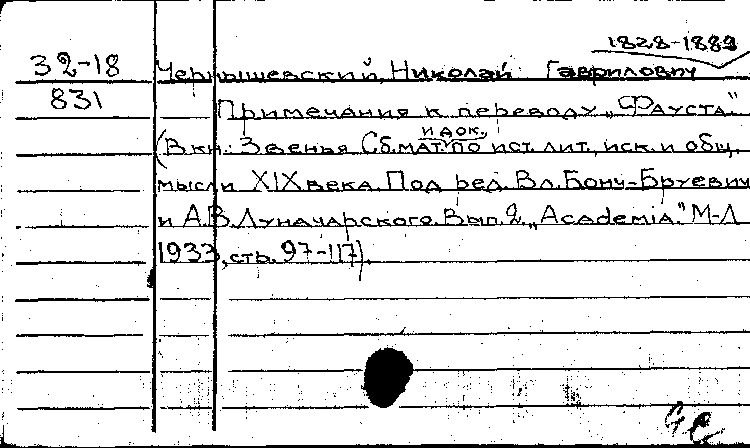 1828-1889
32-18 Чернышевский, Николай Гаврилович
831 Примечания к переводу „Фауста."
и док.
(В кн.: Звенья Сб. мат. по ист. лит., иск. и общ.
мысли XIX века. Под ред. Вл. Бонч-Бруевич
и А.В. Луначарского. Вып. 2, „Academia." М-Л
1933, стр. 97-117).